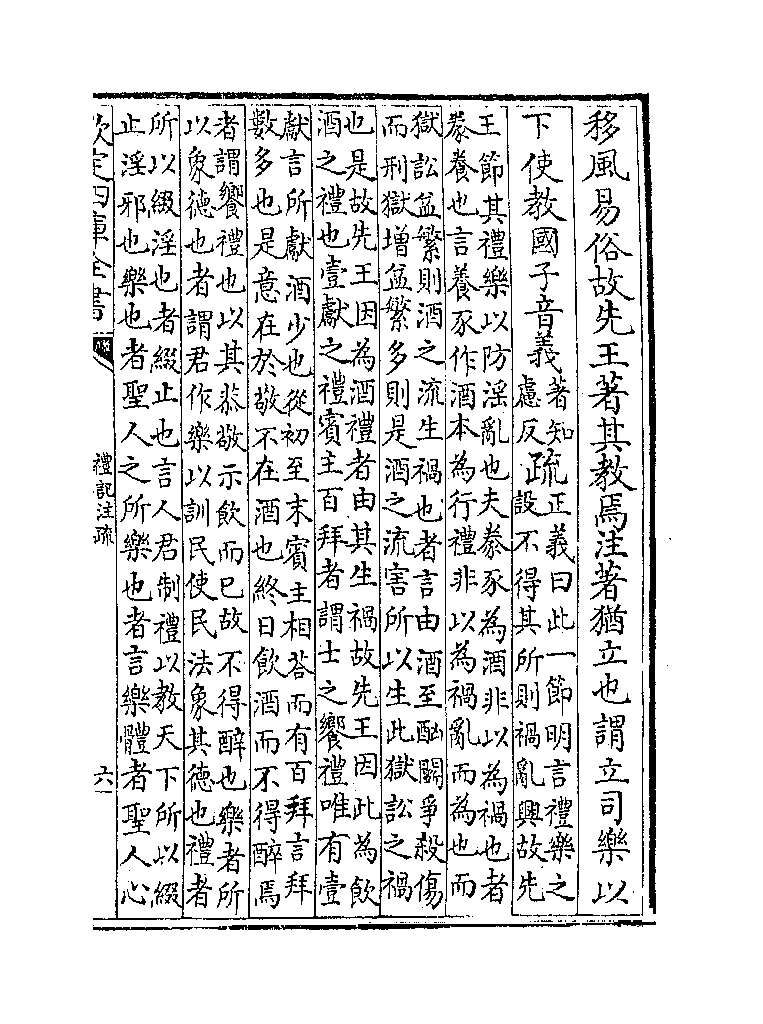 移風易俗故先王著其教焉注著猶立也謂立司樂以
下使教國子音義著知
慮反
疏正義曰此一節明言禮樂之
設不得其所則禍亂興故先
王節其禮樂以防淫亂也夫豢豕為酒非以為禍也者
豢養也言養豕作酒本為行禮非以為禍亂而為也而
獄訟益繁則酒之流生禍也者言由酒至酗鬭爭殺傷
而刑獄增益繁多則是酒之流害所以生此獄訟之禍
也是故先王因為酒禮者由其生禍故先王因此為飲
酒之禮也壹獻之禮賓主百拜者謂士之饗禮唯有壹
獻言所獻酒少也從初至末賓主相荅而有百拜言拜
數多也是意在於敬不在酒也終日飲酒而不得醉焉
者謂饗禮也以其恭敬示飲而已故不得醉也樂者所
以象德也者謂君作樂以訓民使民法象其德也禮者
所以綴淫也者綴止也言人君制禮以教天下所以綴
止淫邪也樂也者聖人之所樂也者言樂體者聖人心
欽定四庫全書
禮記注疏